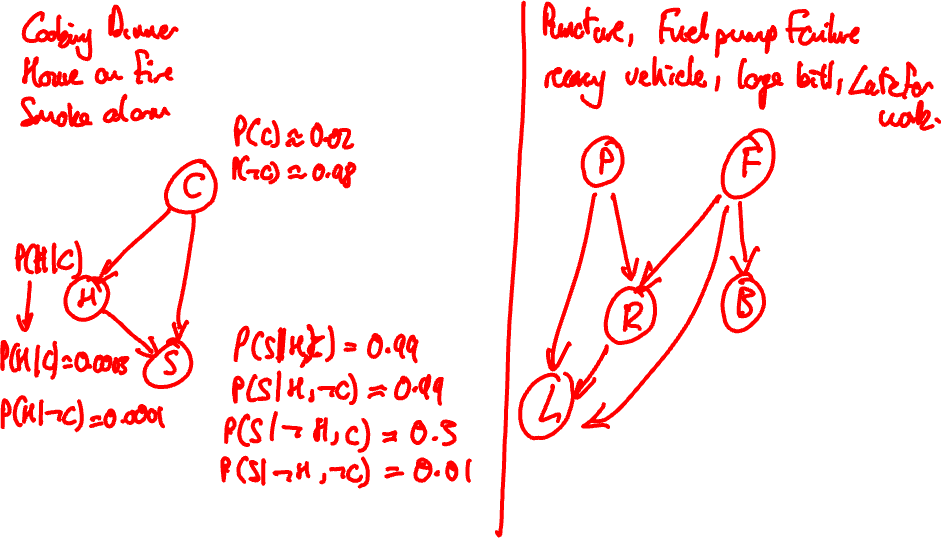 Cooking Dinner
House on Fire
Smoke alarm
P(C) ≈ 0.02
P(¬C) ≈ 0.98
C
P(H|C)
H
S
P(H|¬C) ≈ 0.0001
P(S|H,C) = 0.99
P(S|H,¬C) ≈ 0.99
P(S|¬H,C) = 0.5
P(S|¬H,¬C) = 0.01
Puncture, Fuel pump Failure
vehicle, large bill, Late for
work.
P
F
R
B
L